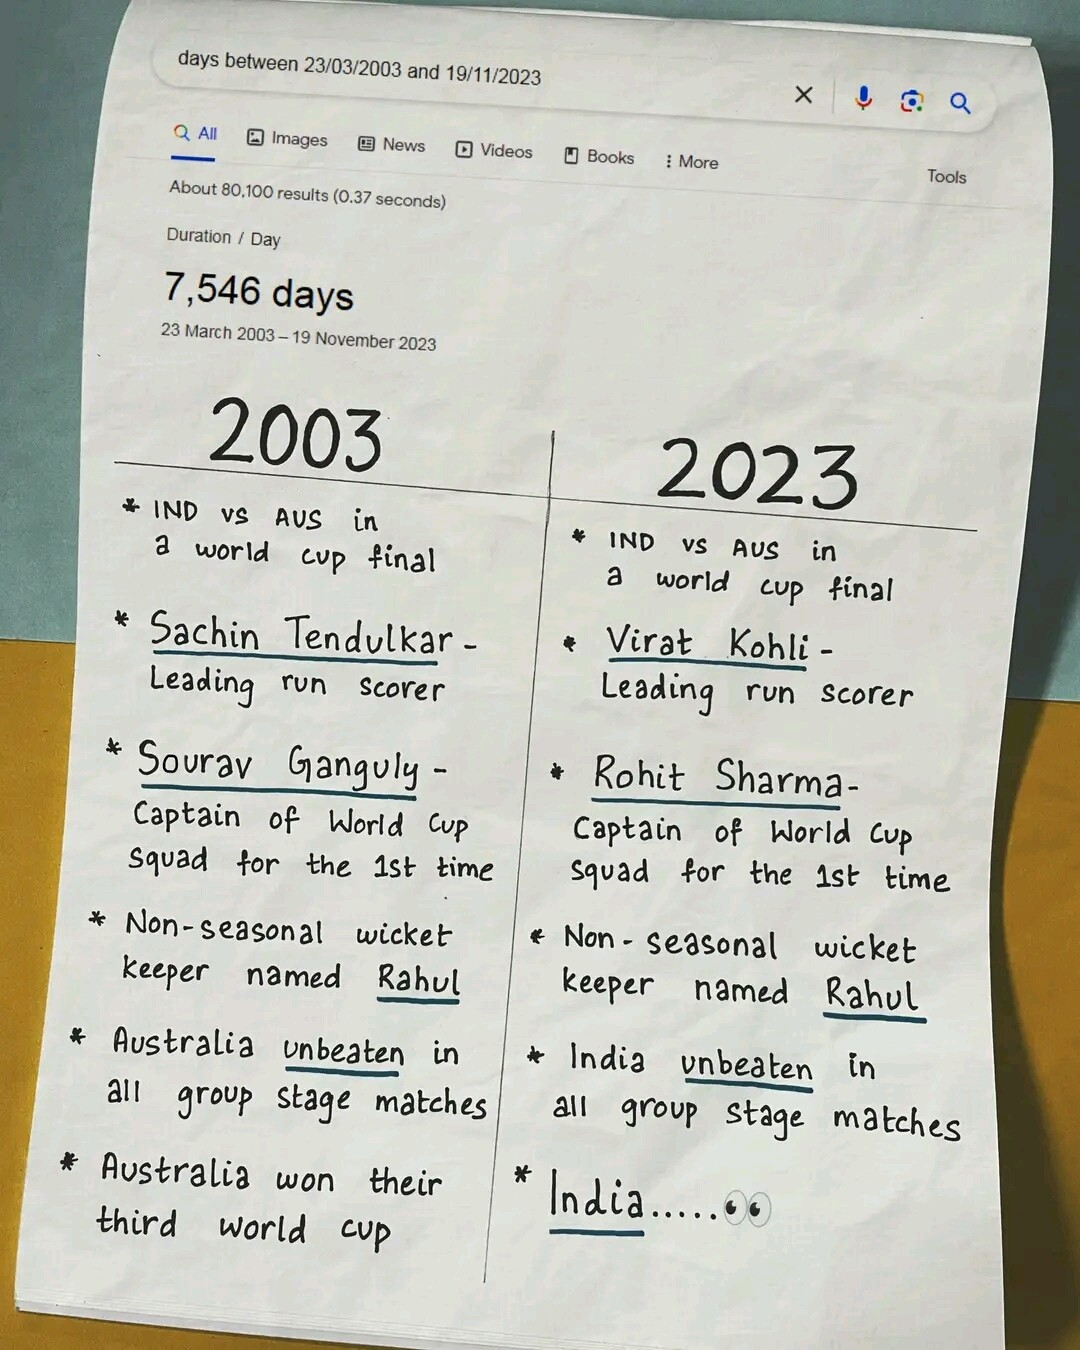 days between 23/03/2003 and 19/11/2023
All Images News Videos Books More Tools
About 80,100 results (0.37 seconds)
Duration / Day
7,546 days
23 March 2003 – 19 November 2023
2003
* IND vs AUS in
a world cup final
* Sachin Tendulkar -
Leading run scorer
* Sourav Ganguly -
Captain of World Cup
squad for the 1st time
* Non-seasonal wicket
keeper named Rahul
* Australia unbeaten in
all group stage matches
* Australia won their
third world cup
2023
* IND vs AUS in
a world cup final
* Virat Kohli -
Leading run scorer
* Rohit Sharma-
Captain of World Cup
squad for the 1st time
* Non - seasonal wicket
keeper named Rahul
* India unbeaten in
all group stage matches
* India.....👀